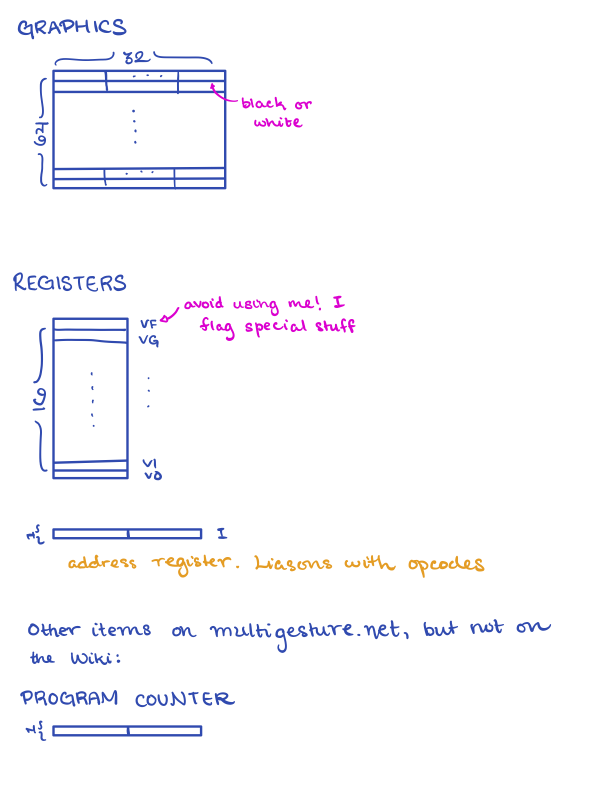 GRAPHICS
32
. . .
64
black or
white
. . .
REGISTERS
avoid using me! I
flag special stuff
VF
VG
16
V1
V0
I
address register. Liasons with opcodes
Other items on multigesture.net, but not on
the Wiki:
PROGRAM COUNTER